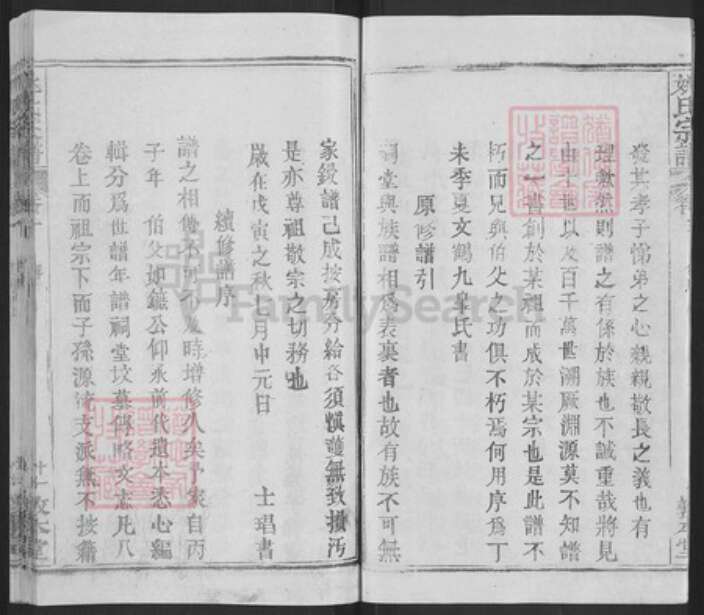 發其孝子悌弟之心親親敬長之義也有
理歟然則譜之有係於族也不誠重哉將見
由十世以及百千萬世溯厥淵源莫不知譜
之一書創於某祖而成於某宗也是此譜不
朽而兄與伯父之功俱不朽焉何用序爲丁
未季夏文鶴九皐氏書
原修譜引
祠堂與族譜相爲表裏者也故有族不可無
家鋟譜已成按房分給各須愼護無致損汚
是亦尊祖敬宗之切務也
歲在戊寅之秋七月中元日 士琩書
續修譜序
譜之相傳不可不及時增修久矣予家自丙
子年 伯父 鑣公仰承前代遺本悉心編
輯分爲世譜年譜祠堂坟墓傳略文志凡八
卷上而祖宗下而子孫源流支派無不披籍
姚氏宗譜
敦本堂
FamilySearch